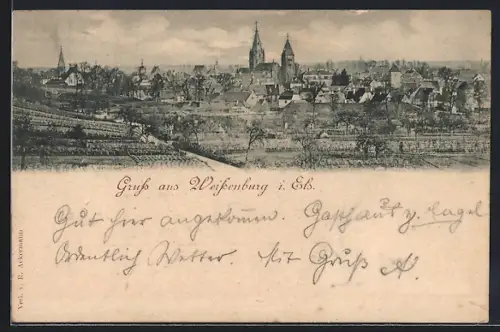 Gruß aus Weißenburg i. Els.
Gut hier angekommen. Gasthaut z. Engel
Ordentlich Wetter. Mit Gruß A.
Verl. v. R. Ackermann